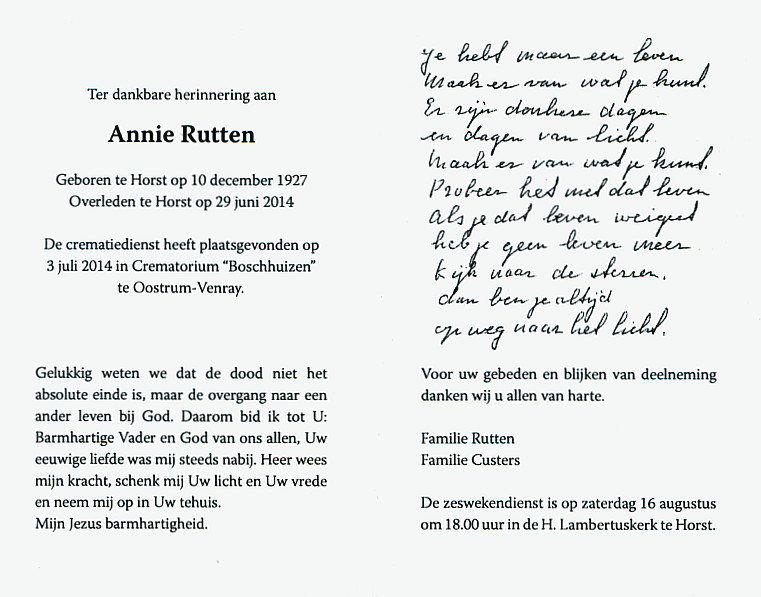 Ter dankbare herinnering aan
Annie Rutten
Geboren te Horst op 10 december 1927
Overleden te Horst op 29 juni 2014
De crematiedienst heeft plaatsgevonden op
3 juli 2014 in Crematorium “Boschhuizen”
te Oostrum-Venray.
Gelukkig weten we dat de dood niet het
absolute einde is, maar de overgang naar een
ander leven bij God. Daarom bid ik tot U:
Barmhartige Vader en God van ons allen, Uw
eeuwige liefde was mij steeds nabij. Heer wees
mijn kracht, schenk mij Uw licht en Uw vrede
en neem mij op in Uw tehuis.
Mijn Jezus barmhartigheid.
Je hebt maar een leven
Maak er van wat je kunt.
Er zijn donkere dagen
en dagen van licht.
Maak er van wat je kunt.
Probeer het met dat leven
Als je dat leven weigert
heb je geen leven meer
Kijk naar de sterren.
dan ben je altijd
op weg naar het licht.
Voor uw gebeden en blijken van deelneming
danken wij u allen van harte.
Familie Rutten
Familie Custers
De zeswekendienst is op zaterdag 16 augustus
om 18.00 uur in de H. Lambertuskerk te Horst.